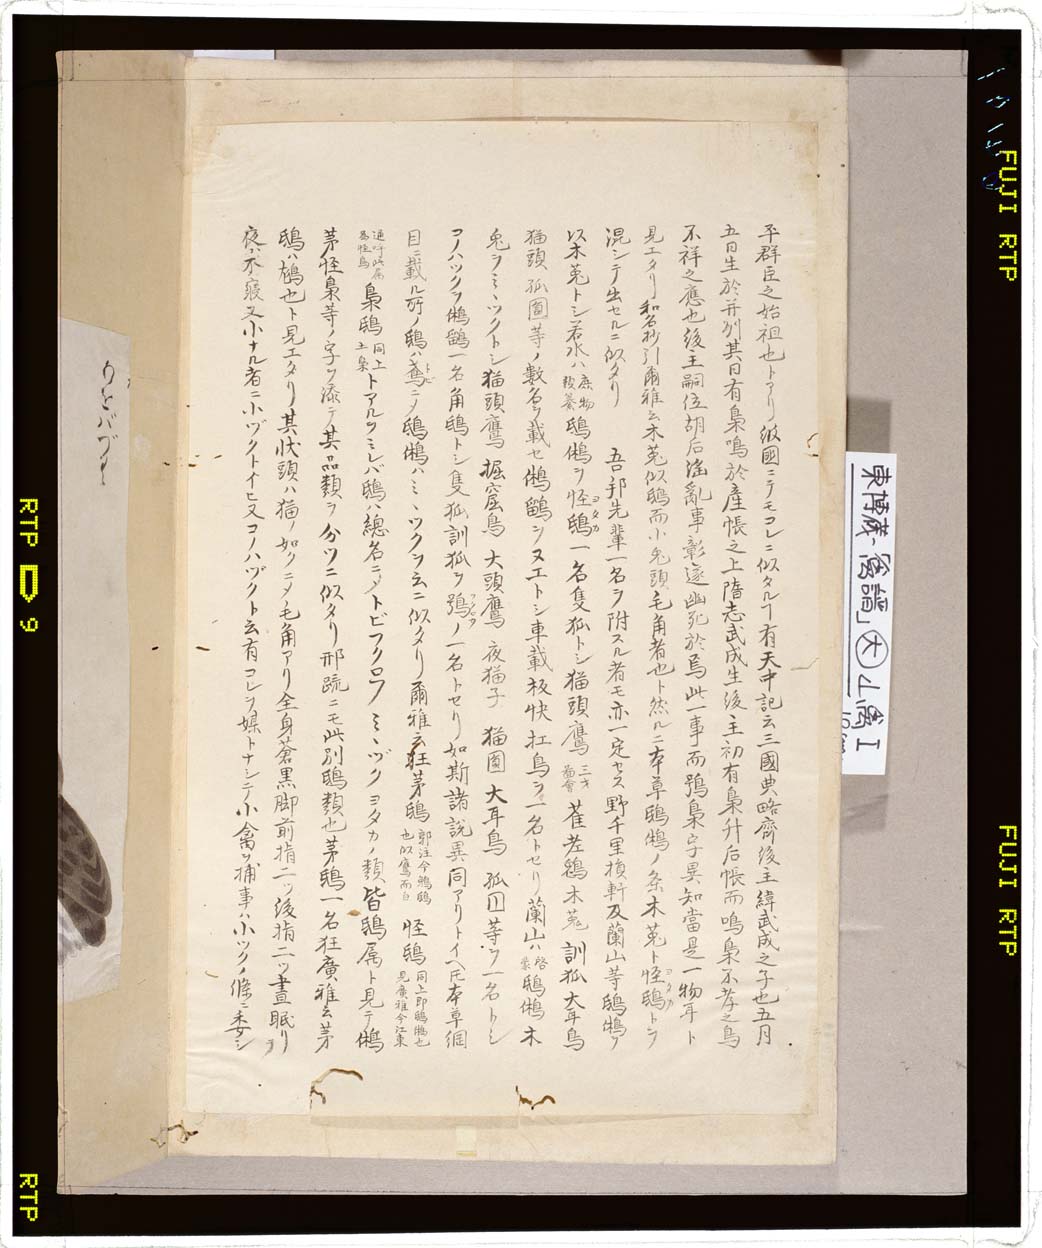 平群臣之始祖也トアリ彼國ニテモコレニ似タルヿ有天中記云三國典略齊後主緯武成之子也五月
五日生於并州其日有梟鳴於產帳之上隋志武成生後主初有梟升后帳而鳴梟不孝之鳥
不祥之應也後主嗣位胡后淫亂事彰遂幽死於焉此一事而鴞梟字異知當是一物耳ト
見エタリ和名抄引爾雅云木菟似鴟而小兔頭毛角者也ト然ルニ本草鴟鵂ノ条木菟ト怪鴟ヨタカトヲ
混シテ出セルニ似タリ 吾邦先輩一名ヲ附スル者モ亦一定セス野千里損軒及蘭山等鴟鵂ヲ
以木菟トシ若水ハ庶物類纂鴟鵂ヲ怪鴟ヨタカ一名隻狐トシ猫頭鷹三才圖會萑老鵵木菟訓狐大耳鳥
猫頭孤圓等ノ數名ヲ載セ鵂鶹ヲヌエトシ車載板快扛鳥ヲ一名トセリ蘭山ハ啓蒙鴟鵂木
兔ヲミヽツクトシ猫頭鷹掘窟鳥大頭鷹夜猫子猫圓大耳鳥孤囚等ヲ一名トシ
コノハツクヲ鵂鶹一名角鴟トシ隻狐訓狐ヲ鴞フクロウノ一名トセリ如斯諸說異同アリトイヘ𪜈本草綱
目ニ載ル所ノ鴟ハ鳶トビニ乄鴟鵂ハミヽツクヲ云ニ似タリ爾雅云狂茅鴟郭注今鵵鴟也似鷹而白怪鴟同上即鴟鵂也見廣雅今江東
通呼此屬爲怪鳥梟鴟同上土梟トアルヲミレバ鴟ハ總名ニ乄トビフクロフミヽヅクヨタカノ類皆鴟属ト見テ鵂
茅怪梟等ノ字ヲ添テ其品類ヲ分ツニ似タリ邢䟽ニモ此別鴟類也茅鴟一名狂廣雅云茅
鴟ハ鵃也ト見エタリ其状頭ハ猫ノ如クニ乄毛角アリ全身蒼黒脚前指二ツ後指二ツ晝眠リ
夜ハ不寢又小ナル者ニ小ヅクトイヒ又コノハヅクト云有コレヲ媒トナシテ小禽ヲ捕事ハ小ツクノ條ニ委シ
東博蔵「禽譜」大 山禽 I
FUJI RTP
FUJI RTP
RTP D 9
RTP